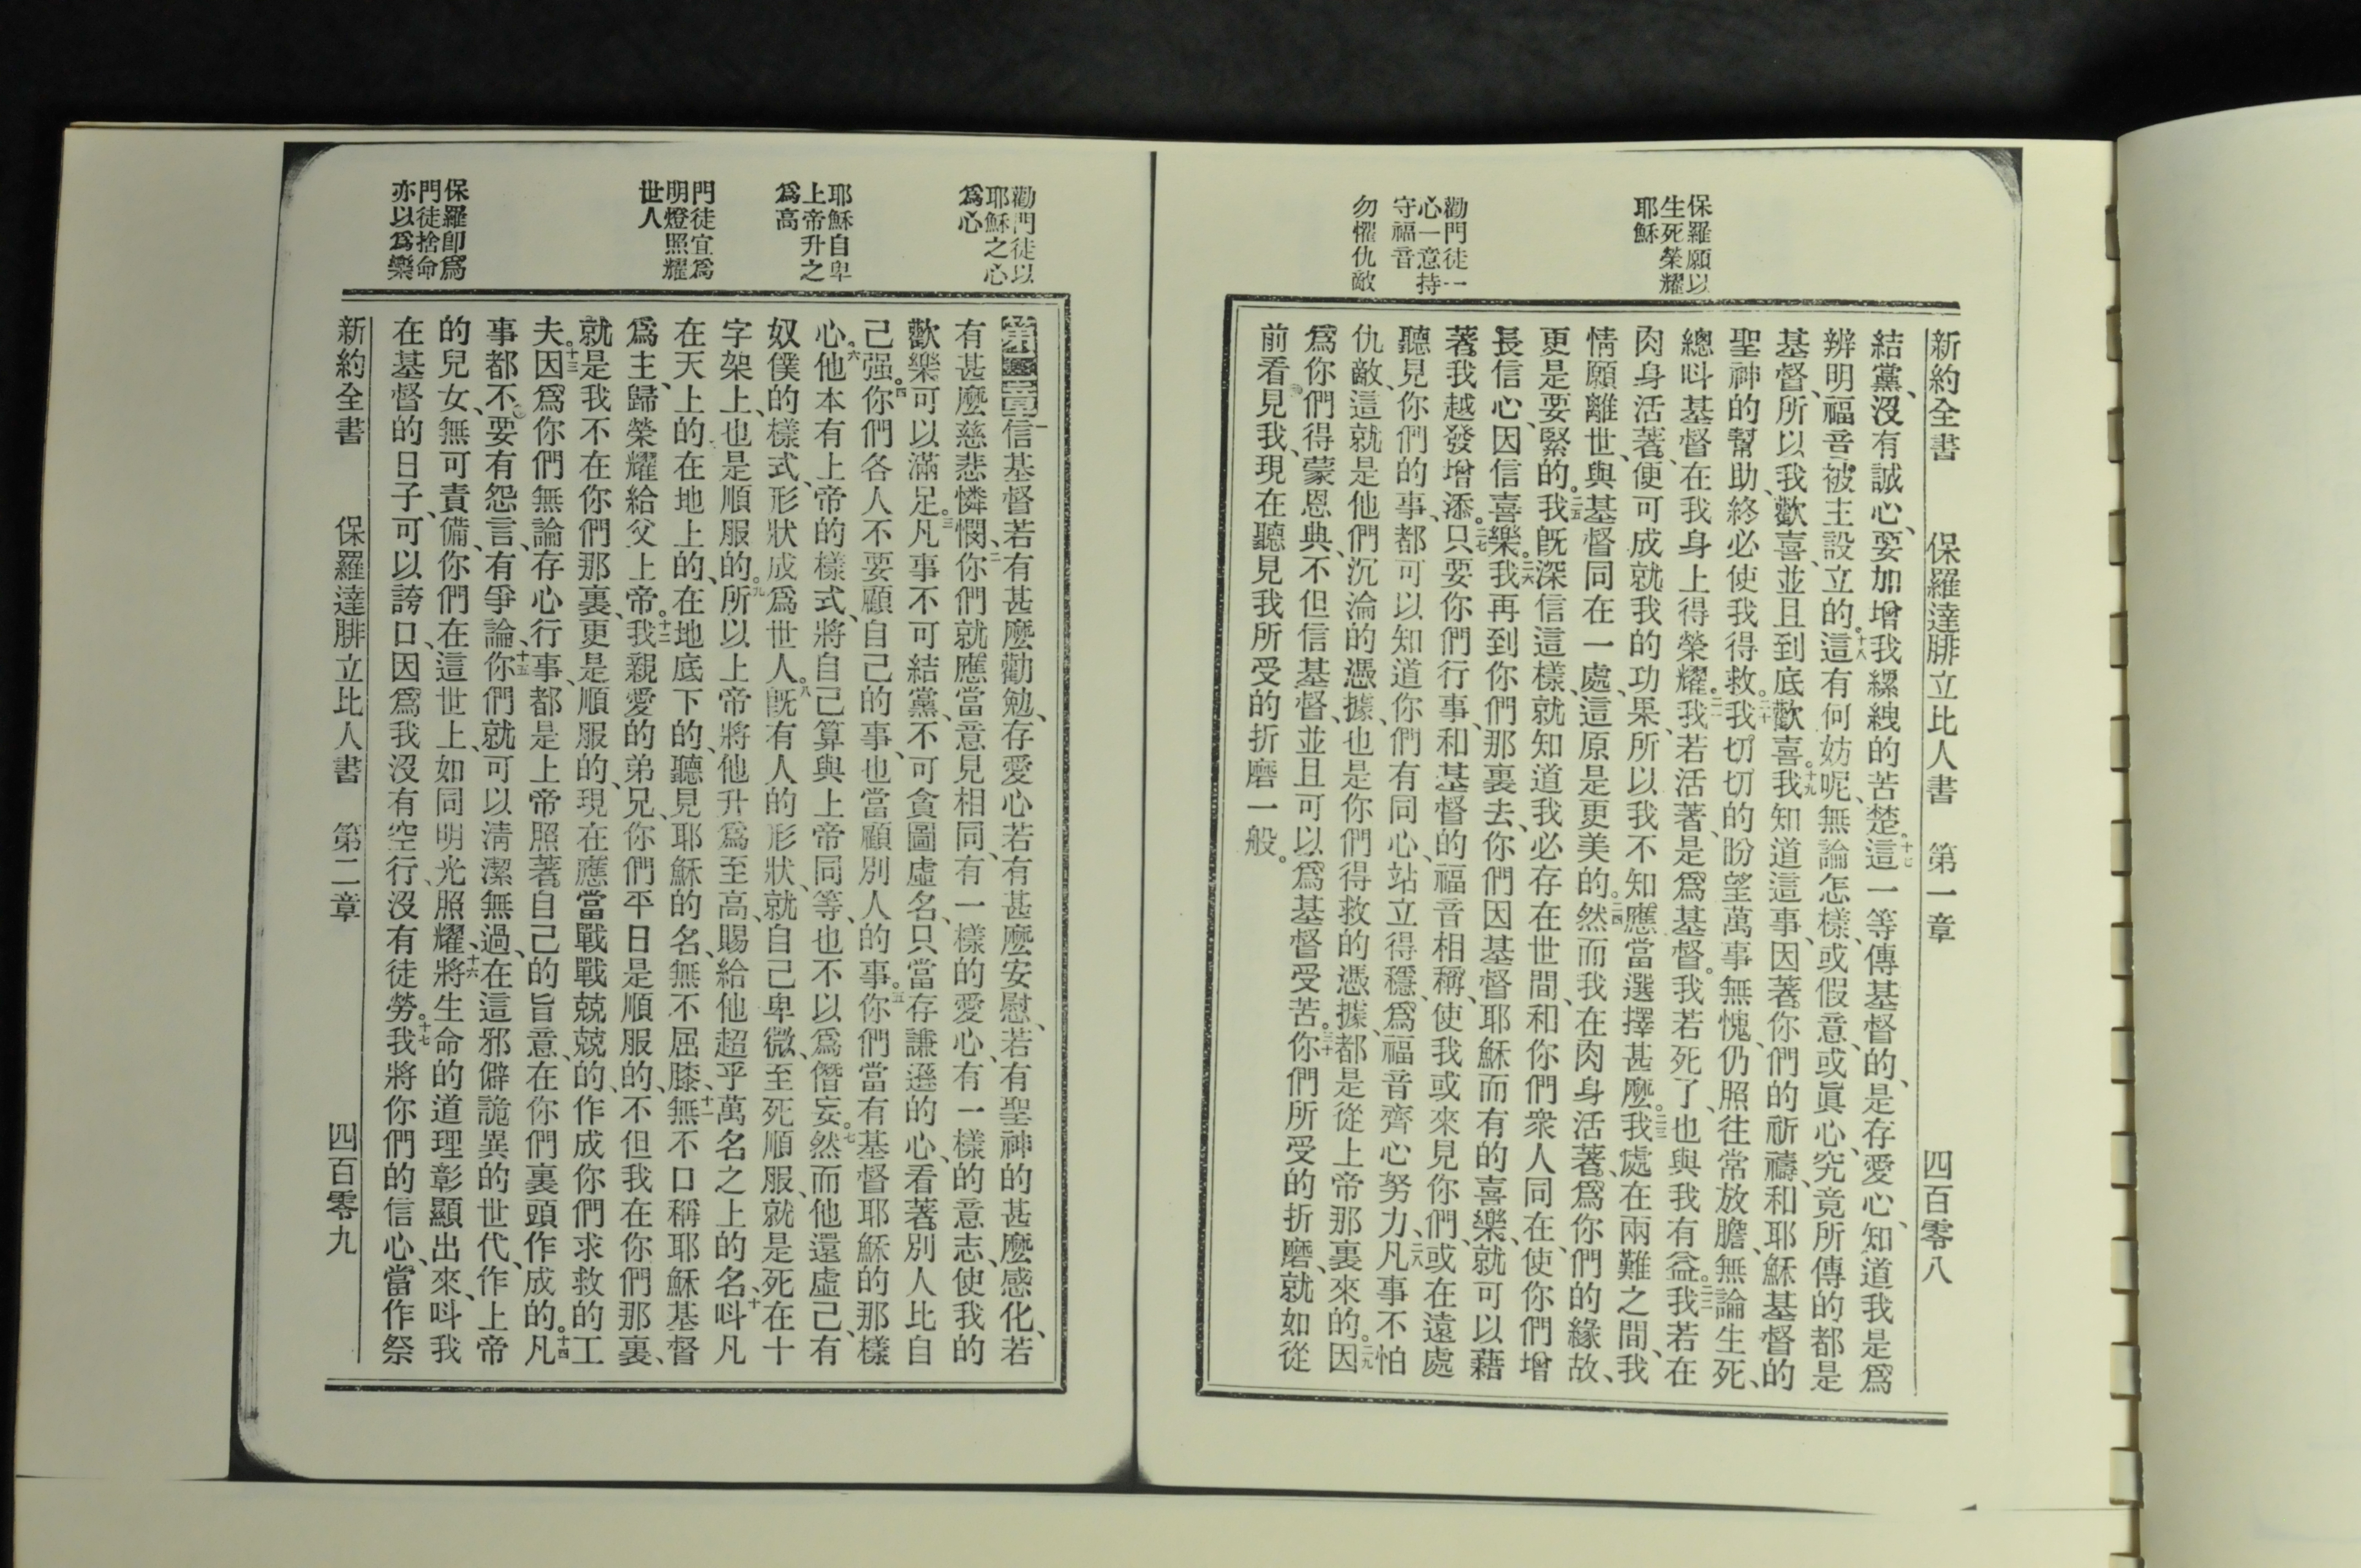 新約全書　保羅達腓立比人書　第一章　四百零八
保羅願以
生死榮耀
耶穌
勸門徒一
心一意持
守福音
勿懼仇敵
結黨、沒有誠心、要加增我縲絏的苦楚。十七這一等傳基督的、是存愛心、知道我是爲
辨明福音被主設立的。十八這有何妨呢、無論怎樣、或假意、或眞心、究竟所傳的都是
基督、所以我歡喜、並且到底歡喜。十九我知道這事、因著你們的祈禱、和耶穌基督的
聖神的幫助、終必使我得救。二十我切切的盼望萬事無愧、仍照往常放膽、無論生死、
總呌基督在我身上得榮耀。二一我若活著、是爲基督。我若死了、也與我有益。二二我若在
肉身活著、便可成就我的功果、所以我不知應當選擇甚麼。二三我處在兩難之間、我
情願離世、與基督同在一處、這原是更美的。二四然而我在肉身活著、爲你們的緣故、
更是要緊的。二五我旣深信這樣、就知道我必存在世間、和你們衆人同在、使你們增
長信心、因信喜樂。二六我再到你們那裏去、你們因基督耶穌而有的喜樂、就可以藉
著我越發增添。二七只要你們行事、和基督的福音相稱、使我或來見你們、或在遠處
聽見你們的事、都可以知道你們有同心、站立得穩、爲福音齊心努力、二八凡事不怕
仇敵、這就是他們沉淪的憑據、也是你們得救的憑據、都是從上帝那裏來的。二九因
爲你們得蒙恩典、不但信基督、並且可以爲基督受苦。三十你們所受的折磨、就如從
前看見我、現在聽見我所受的折磨一般。
勸門徒以
耶穌之心
爲心
耶穌自卑
上帝升之
爲高
門徒宜爲
明燈照耀
世人
保羅卽爲
門徒捨命
亦以爲樂
第二章一信基督若有甚麼勸勉、存愛心若有甚麼安慰、若有聖神的甚麼感化、若
有甚麼慈悲憐憫、二你們就應當意見相同、有一樣的愛心、有一樣的意志、使我的
歡樂可以滿足。三凡事不可結黨、不可貪圖虛名、只當存謙遜的心、看著別人比自
己强。四你們各人不要顧自己的事、也當顧別人的事。五你們當有基督耶穌的那樣
心。六他本有上帝的樣式、將自己算與上帝同等、也不以爲僭妄。七然而他還虛己、有
奴僕的樣式、形狀成爲世人。八旣有人的形狀、就自己卑微、至死順服、就是死在十
字架上、也是順服的。九所以上帝將他升爲至高、賜給他超乎萬名之上的名、十呌凡
在天上的在地上的、在地底下的、聽見耶穌的名、無不屈膝、十一無不口稱耶穌基督
爲主、歸榮耀給父上帝。十二我親愛的弟兄、你們平日是順服的、不但我在你們那裏、
就是我不在你們那裏、更是順服的、現在應當戰戰兢兢的、作成你們求救的工
夫。十三因爲你們無論存心行事、都是上帝照著自己的旨意、在你們裏頭作成的。十四凡
事都不要有怨言、有爭論、十五你們就可以淸潔無過、在這邪僻詭異的世代、作上帝
的兒女、無可責備、你們在這世上、如同明光照耀、十六將生命的道理彰顯出來、呌我
在基督的日子、可以誇口、因爲我沒有空行、沒有徒勞。十七我將你們的信心、當作祭
新約全書　保羅達腓立比人書　第二章　四百零九